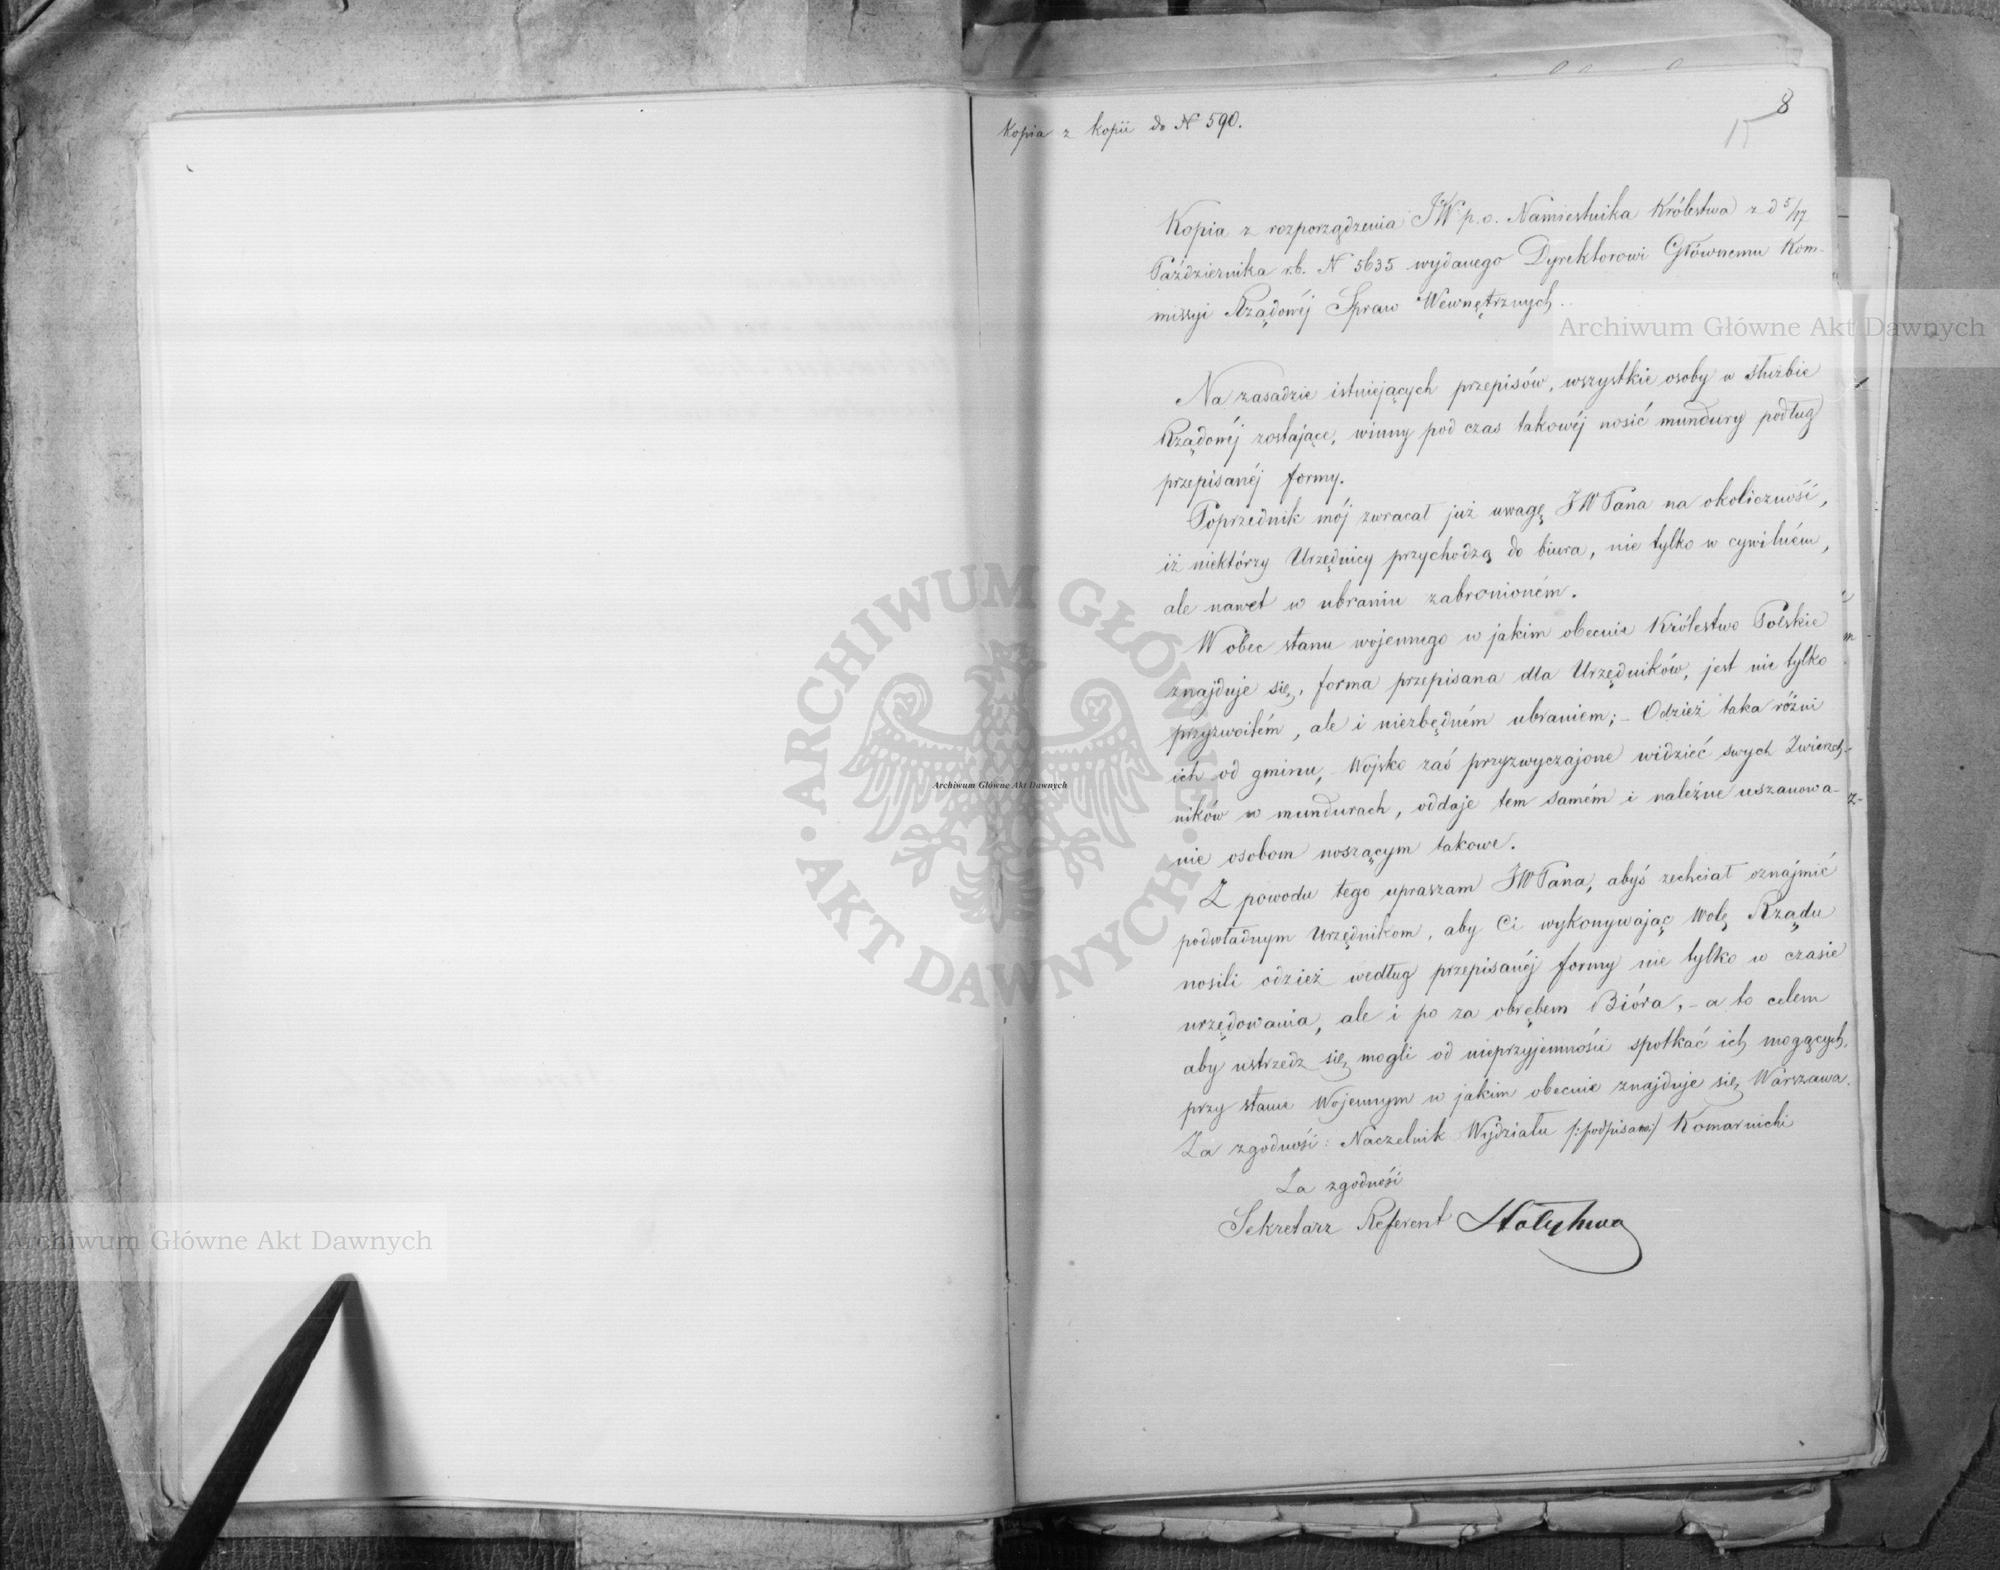 8
15
Kopia z kopii do N 590.
Kopia z rozporządzenia JW p.o. Namiestnika Królestwa z d 5/17
Października r.b. N 5635 wydanego Dyrektorowi Głównemu Kom-
missyi Rządowéj Spraw Wewnętrznych.
Na zasadzie istniejących przepisów, wszystkie osoby w służbie
Rządowéj zostające, winny pod czas takowéj nosić mundury podług
przepisanéj formy.
Poprzednik mój zwracał już uwagę JW Pana na okoliczność,
iż niektórzy Urzędnicy przychodzą do biura, nie tylko w cywilném,
ale nawet w ubraniu zabronioném.
W obec stanu wojennego w jakim obecnie Królestwo Polskie
znajduje się, forma przepisana dla Urzędników, jest nie tylko
przyzwoitém, ale i niezbędném ubraniem; - Odzież taka różni
ich od gminu, - Wojsko zaś przyzwyczajone widzieć swych Zwierzch-
ników w mundurach, oddaje tem samém i należne uszanowa-
nie osobom noszącym takowe.
Z powodu tego upraszam JW Pana, abyś zechciał oznájmić
podwładnym Urzędnikom, aby Ci wykonywając Wolę Rządu
nosili odzież według przepisanéj formy nie tylko w czasie
urzędowania, ale i po za obrębem Bióra, - a to celem
aby ustrzedz się mogli od nieprzyjemności spotkać ich mogących,
przy stanie Wojennym w jakim obecnie znajduje się Warszawa.
Za zgodność: Naczelnik Wydziału /:podpisano:/ Komarnicki
Za zgodność
Sekretarz Referent
Archiwum Główne Akt Dawnych
Archiwum Główne Akt Dawnych
Archiwum Główne Akt Dawnych
ARCHIWUM GŁÓWNE AKT DAWNYCH